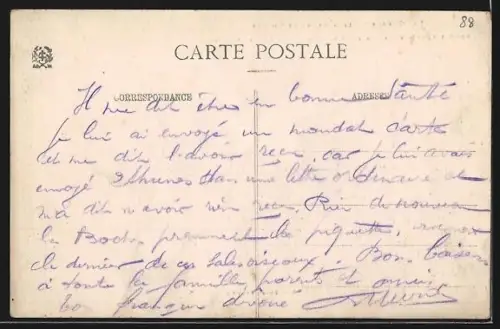 88
CARTE POSTALE
CORRESPONDANCE ADRESSE
Il me dit être en bonne Santé
je lui ai envoyé un mandat carte
et me dit l'avoir reçu, car je lui avais
envoyé dans une lettre ordinaire et
m'a dit n'avoir rien reçu. Rien de nouveau
les Boches prennent la piquette, vivement
le dernier de ces sales oiseaux. Bons baisers
à toute la famille, parents et amis
Ton